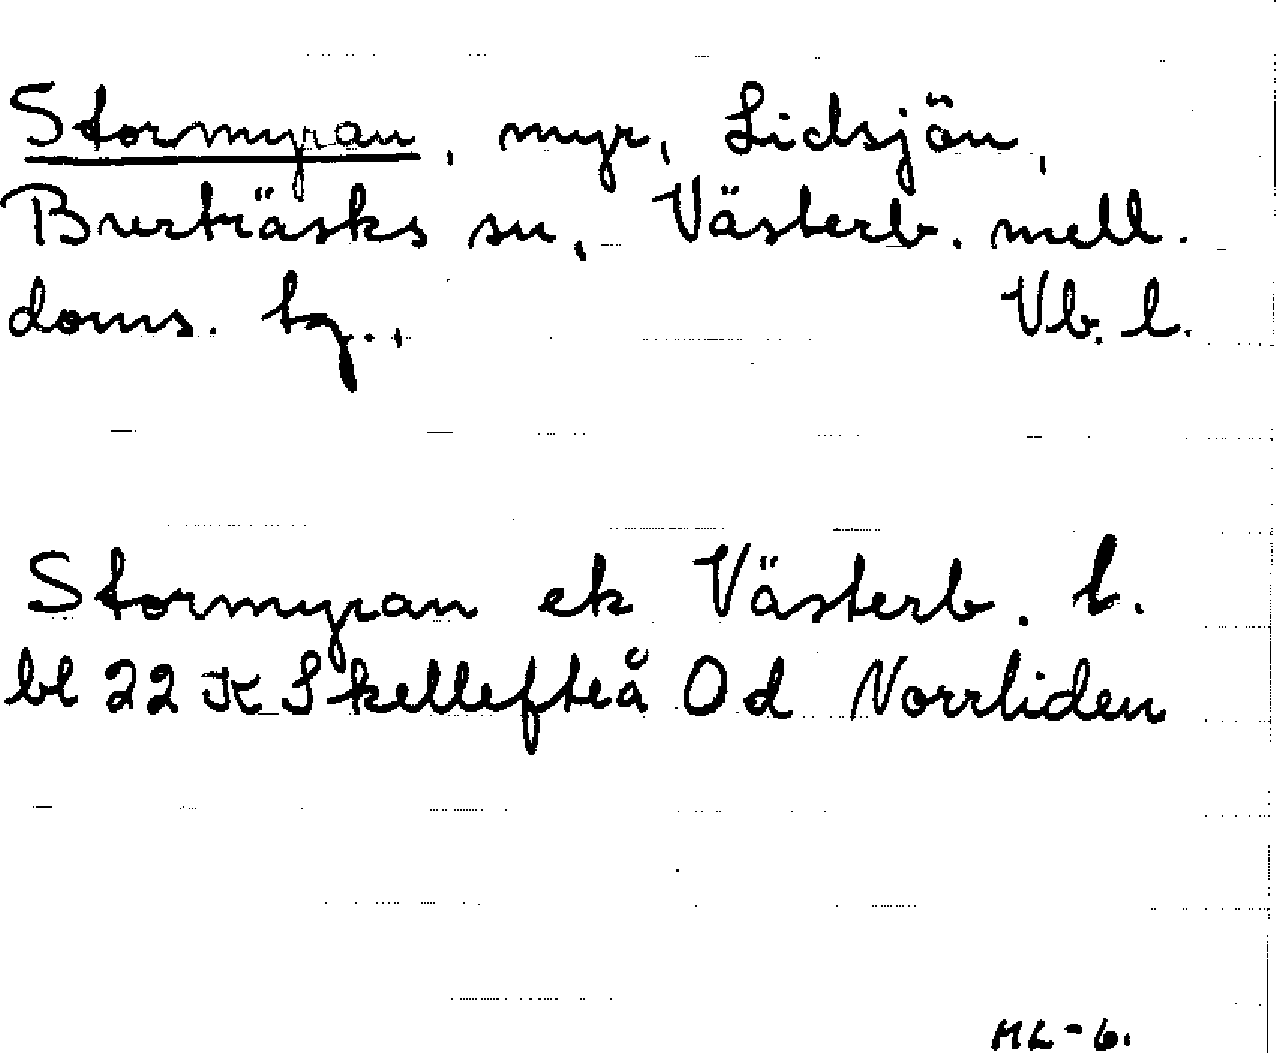 Stormyran, myr, Lidsjön,
Burträsks sn, Västerb. mell.
doms. tg., Vb. l.
Stormyran ek Västerb. l.
bl 22 K Skellefteå 0d Norrliden
ML-6.